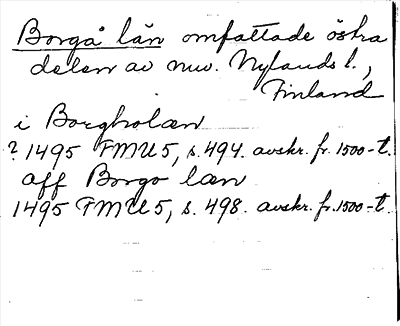 Borgå län omfattade östra
delen av nuv. Nylands l.,
Finland
i Borgholæn
? 1495 FMU 5, s. 494. avskr. fr. 1500-t.
aff Borgo læn
1495 FMU 5, s. 498. avskr. fr. 1500-t.